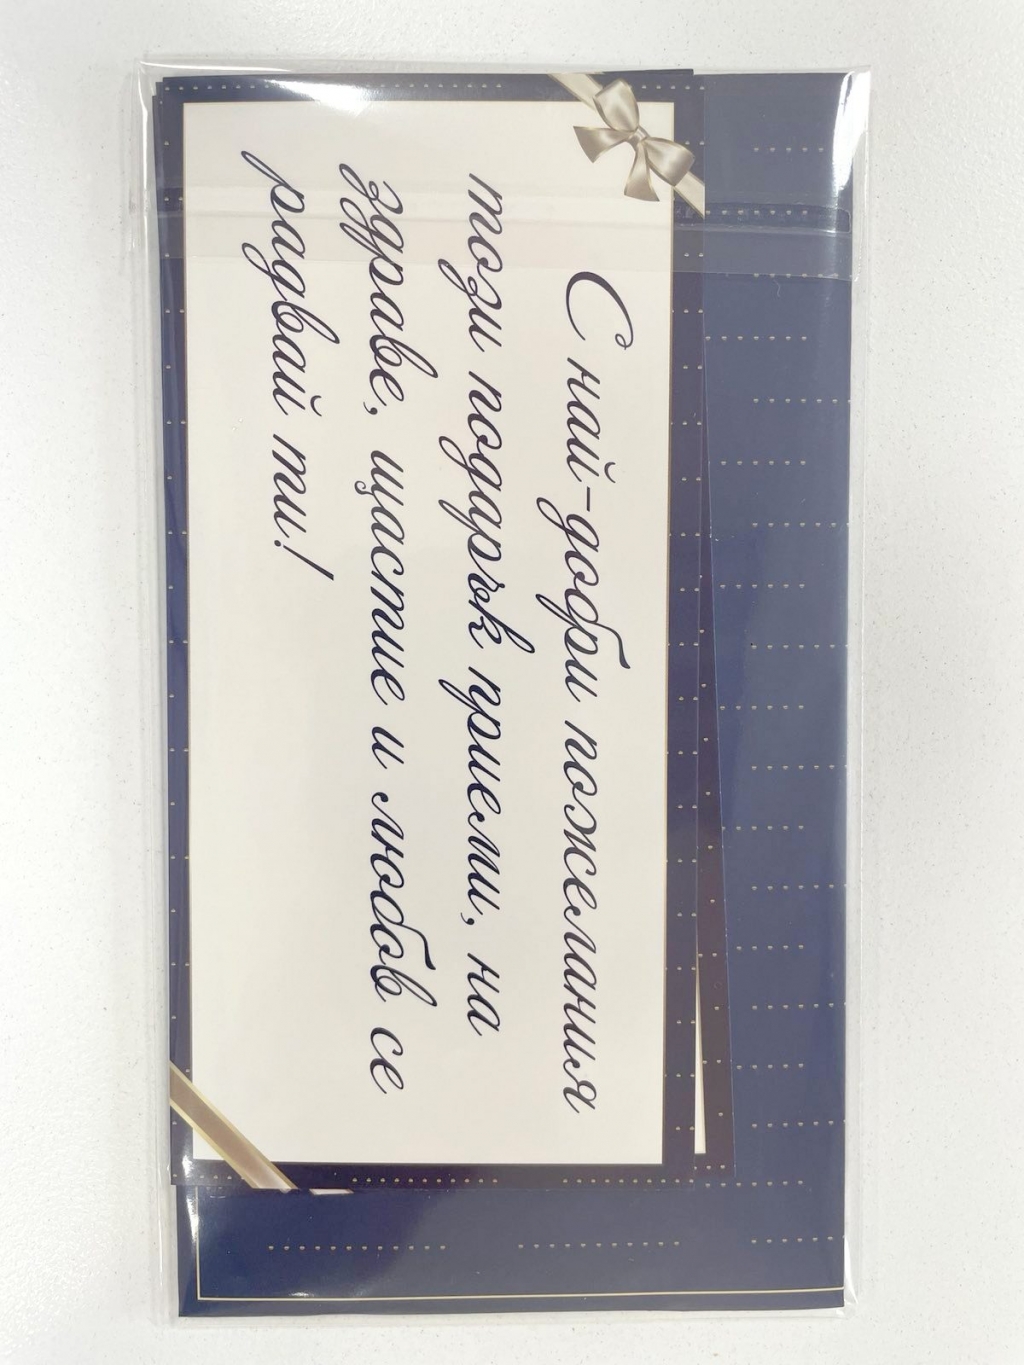 С най-добри пожелания
този подарък приеми, на
здраве, щастие и любов се
радвай ти!